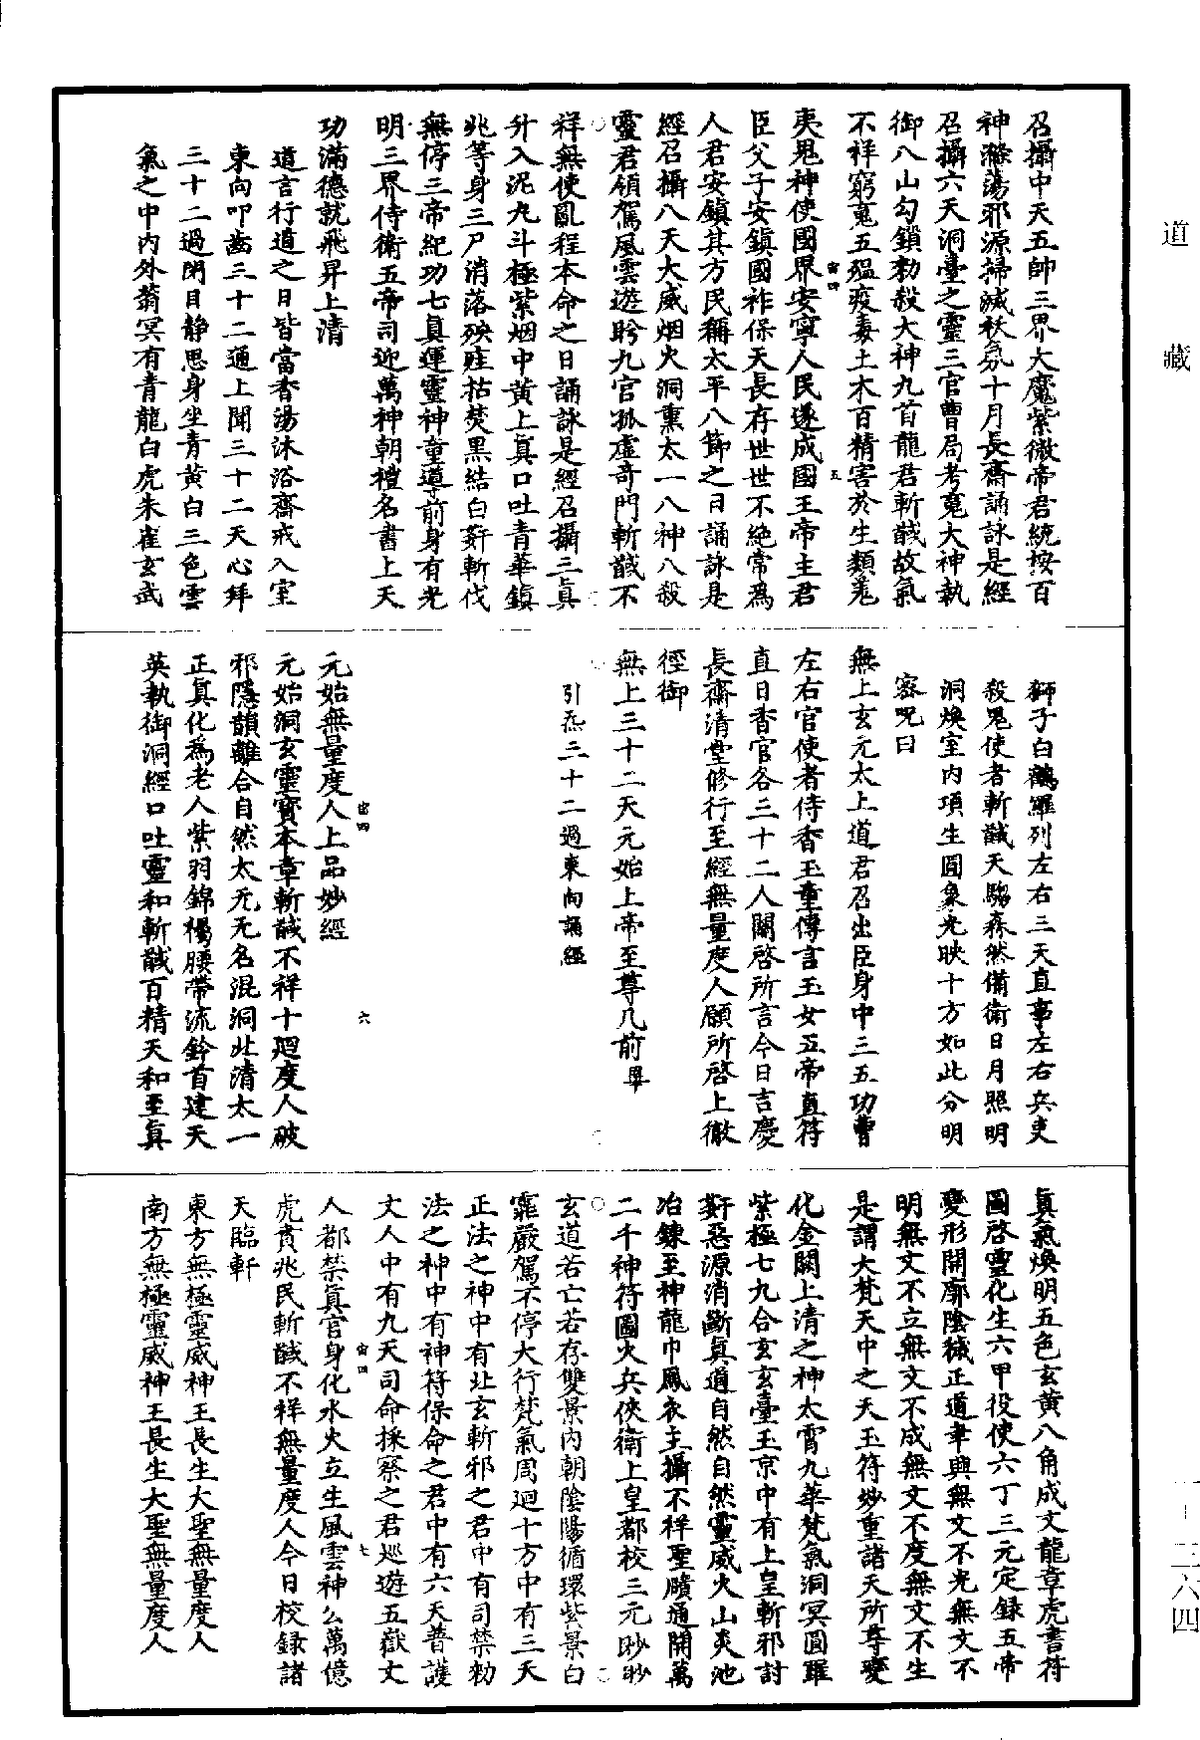 道藏
召攝中天五帥三界大魔紫微帝君統按百
神滌蕩邪源掃滅袄氛十月長齋誦詠是經
召攝六天洞臺之靈三官曹局考鬼大神執
御八山勾鎖勑殺大神九首龍君斬馘故氣
不祥窮鬼五瘟疫毒土木百精害於生類羌
宙四 五
夷鬼神使國界安寧人民遂成國王帝主君
臣父子安鎮國祚保天長存世世不絕常為
人君安鎮其方民稱太平八節之日誦詠是
經召攝八天大威烟火洞熏太一八神八殺
靈君領駕風雲遊眄九宮孤虛奇門斬馘不
祥無使亂程本命之日誦詠是經召攝三真
升入泥丸斗極紫烟中黃上真口吐青華鎮
兆等身三尸消落殃䟦枯焚黑結白姧斬伐
無停三帝紀功七真運靈神童導前身有光
明三界侍衛五帝司迎萬神朝禮名書上天
功滿德就飛昇上清
道言行道之日皆當香湯沐浴齋戒入室
東向叩齒三十二通上聞三十二天心拜
三十二過閉目靜思身坐青黃白三色雲
氣之中內外蓊冥有青龍白虎朱雀玄武
獅子白鶴羅列左右三天直事左右兵吏
殺鬼使者斬馘天騶森然備衛日月照明
洞煥室內項生圓象光映十方如此分明
密呪曰
無上玄元太上道君召出臣身中三五功曹
左右官使者侍香玉童傳言玉女五帝直符
直日香官各三十二人關啓所言今日吉慶
長齋清堂修行至經無量度人願所啓上徹
徑御
無上三十二天元始上帝至尊几前畢
引炁三十二過東向誦經
宙四 六
元始無量度人上品妙經
元始洞玄靈寶本章斬馘不祥十廻度人破
邪隱韻離合自然太无无名混洞北清太一
正真化為老人紫羽錦襡腰帶流鈴首建天
英執御洞經口吐靈和斬馘百精天和至真
真氣煥明五色玄黃八角成文龍章虎書符
圖啓靈化生六甲役使六丁三元定錄五帝
變形開廓陰穢正道聿興無文不光無文不
明無文不立無文不成無文不度無文不生
是謂大梵天中之天玉符妙重諸天所尊變
化金闕上清之神太霄九華梵氣洞冥圓羅
紫極七九合玄玄臺玉京中有上皇斬邪討
姧惡源消斷真道自然自然靈威火山炎池
冶鍊至神龍巾鳳衣主攝不祥聖牘通開萬
二千神符圖火兵俠衛上皇都校三元眇眇
玄道若亡若存雙景內朝陰陽循環紫景白
霏嚴駕不停大行梵氣周迴十方中有三天
正法之神中有北玄斬邪之君中有司禁勑
法之神中有神符保命之君中有六天普護
丈人中有九天司命採察之君巡遊五嶽丈
宙四 七
人都禁真官身化水火立生風雲神公萬億
虎賁兆民斬馘不祥無量度人今日校錄諸
天臨軒
東方無極靈威神王長生大聖無量度人
南方無極靈威神王長生大聖無量度人